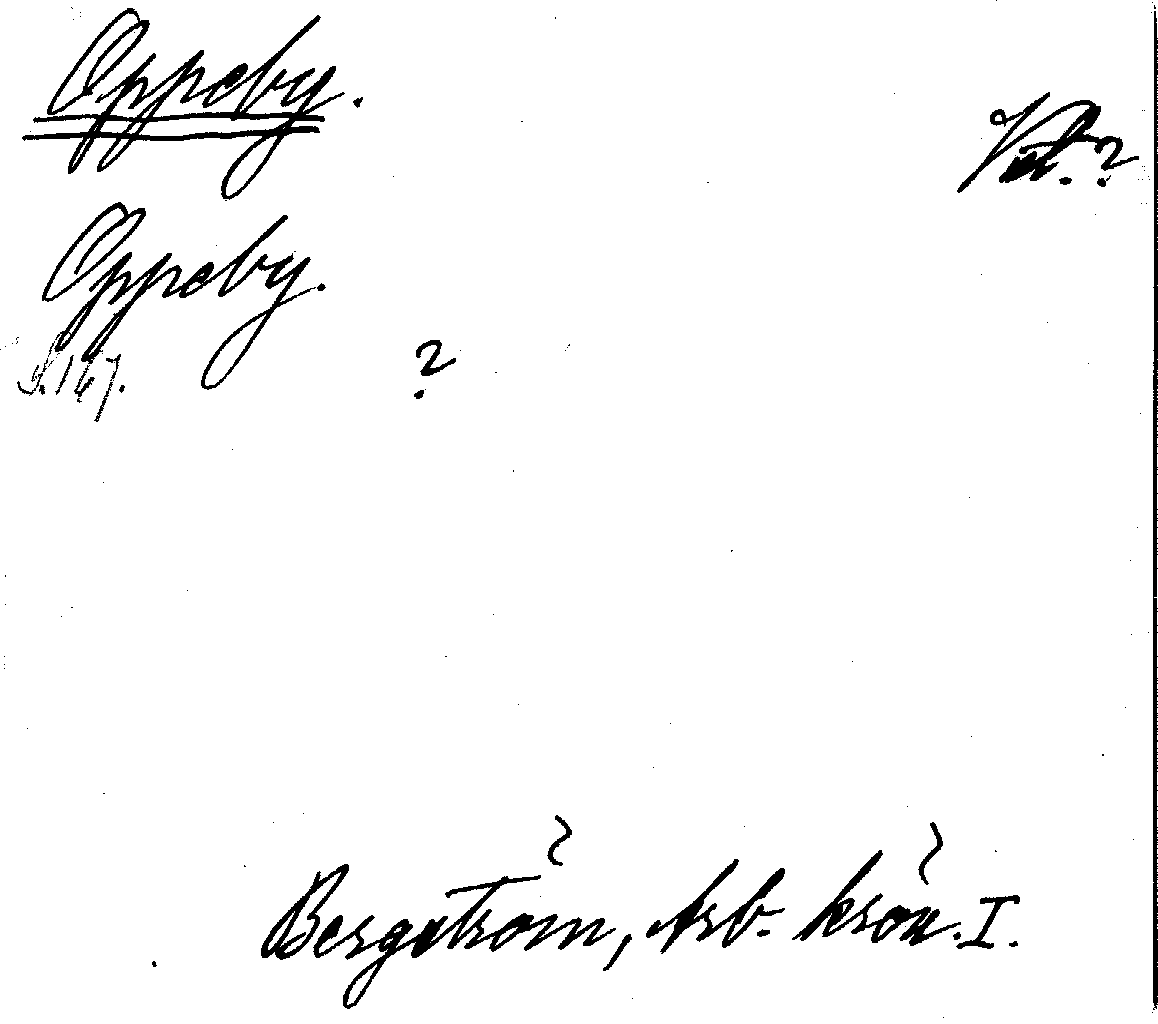 Oppeby.
Vät.?
Oppeby.
S. 167. ?
Bergström, Arb. krön. I.